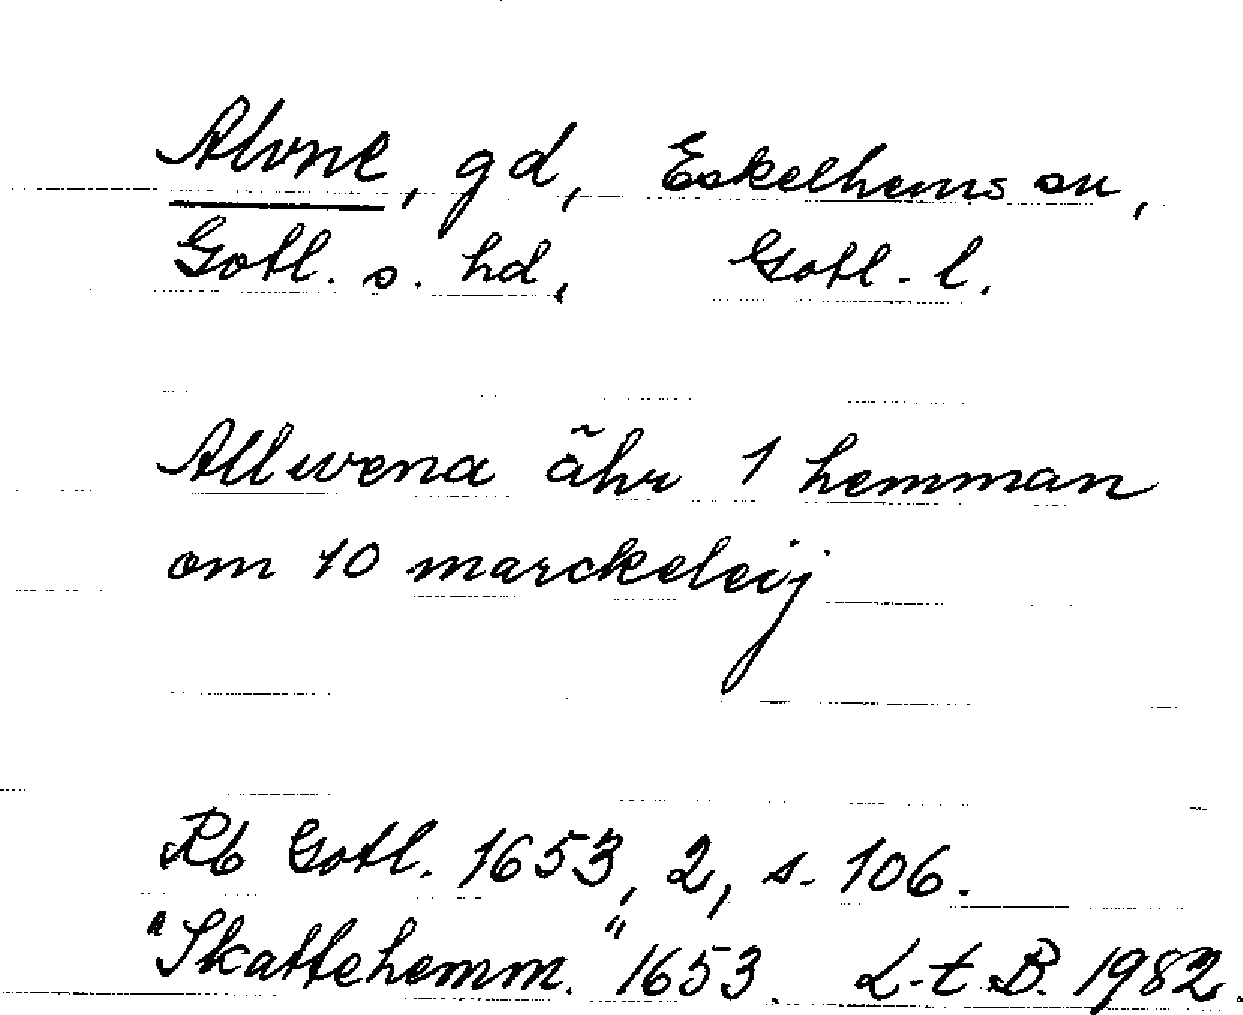 Alvne, gd, Eskelhems sn,
Gotl. s. hd, Gotl. l.
Allwena ähr 1 hemman
om 10 marckeleij
Rb Gotl. 1653, 2, s. 106.
"Skattehemm." 1653. L-t B. 1982.